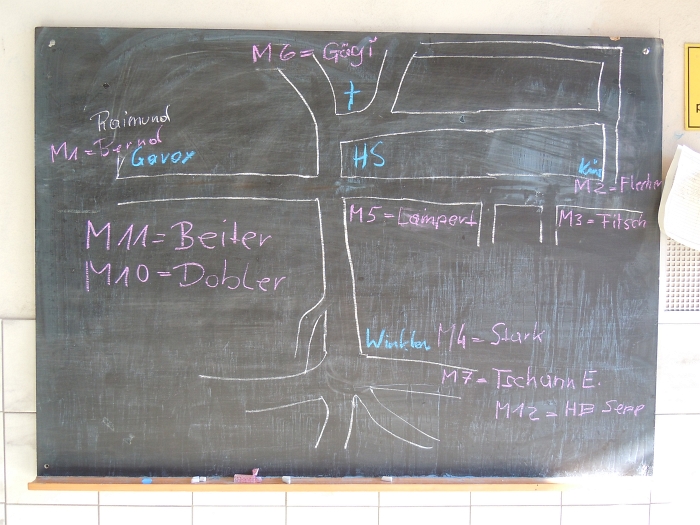 M6 = Gögi
†
Raimund
M1 = Bernd
Gavox
HS
M2 = Flecher
M5 = Lampert
M3 = Fitsch
M11 = Beiter
M10 = Dobler
Winkler
M4 = Stark
M7 = Tschann E.
M12 = HB Sepp